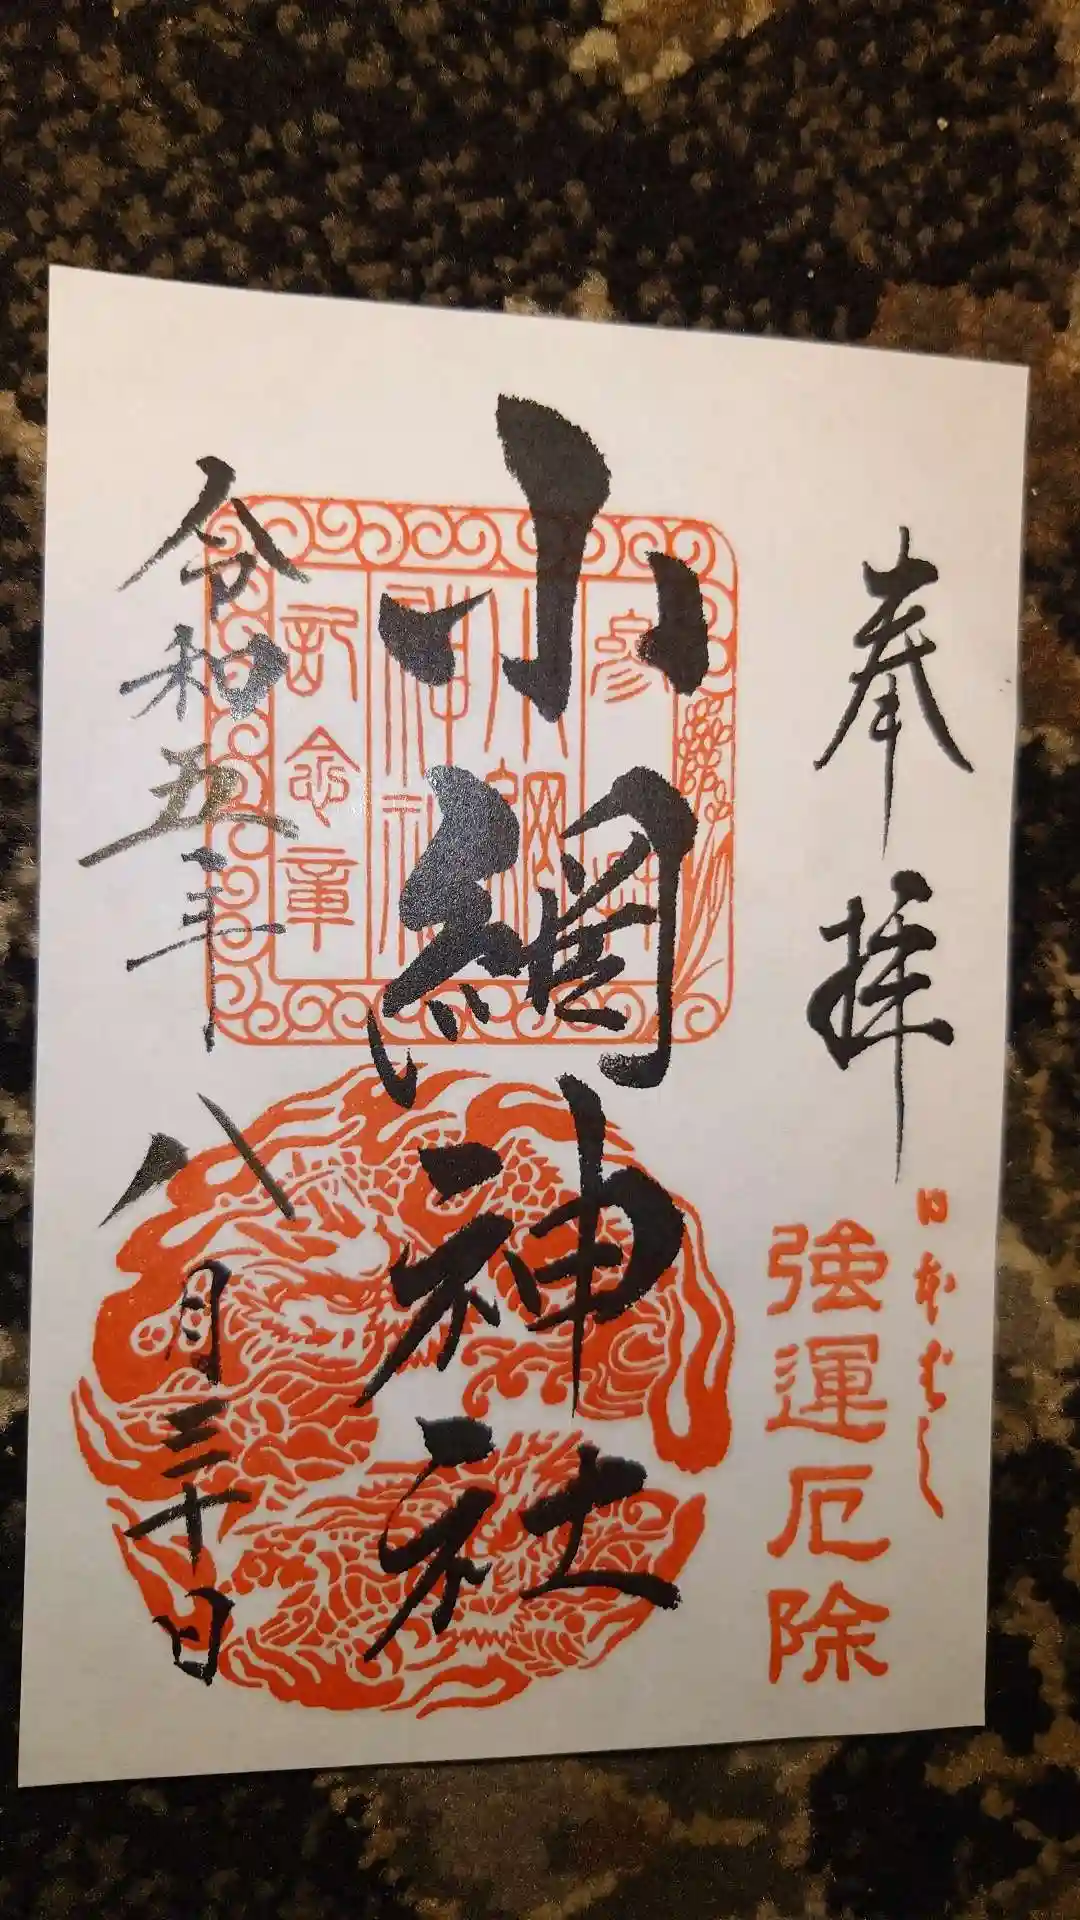 奉拝
日本ばし
強運厄除
小網神社
参拝
小網
神社
記念章
令和五年
八月三十日